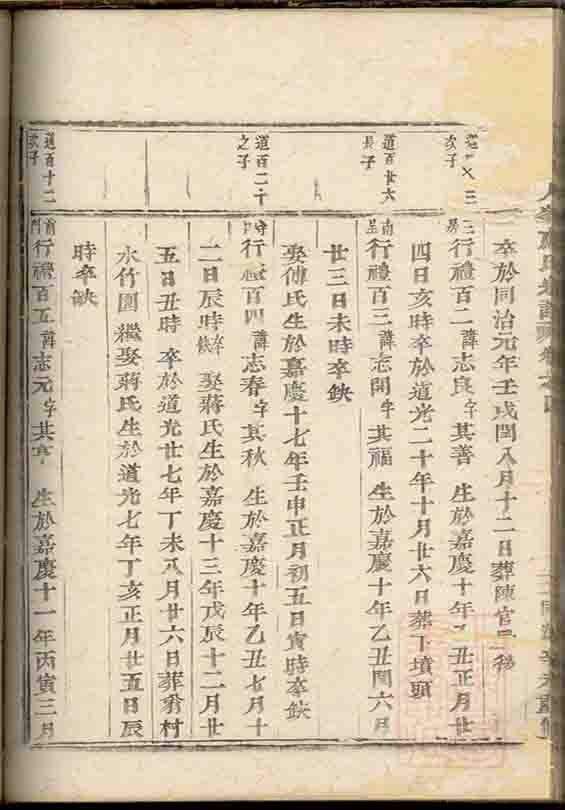 卒於同治元年壬戌閏八月十二日葬陳官
次子
行禮百二諱志良字其善 生於嘉慶十年乙丑正月廿
四日亥時卒於道光二十年十月廿六日葬下墳頭
道百廿六
長子
行禮百三諱志開字其福 生於嘉慶十年乙丑閏六月
廿三日未時卒缺
娶傅氏生於嘉慶十七年壬申正月初五日寅時卒缺
道百二十
之子
行禮百四諱志春字其秋 生於嘉慶十年乙丑七月十
二日辰時 娶蔣氏生於嘉慶十三年戊辰十二月廿
五日丑時 卒於道光廿七年丁未八月廿六日葬 村
水竹園 繼娶蔣氏生於道光七年丁亥正月廿五日辰
時卒缺
道百十二
次子
行禮百五諱志元字其亨 生於嘉慶十一年丙寅三月